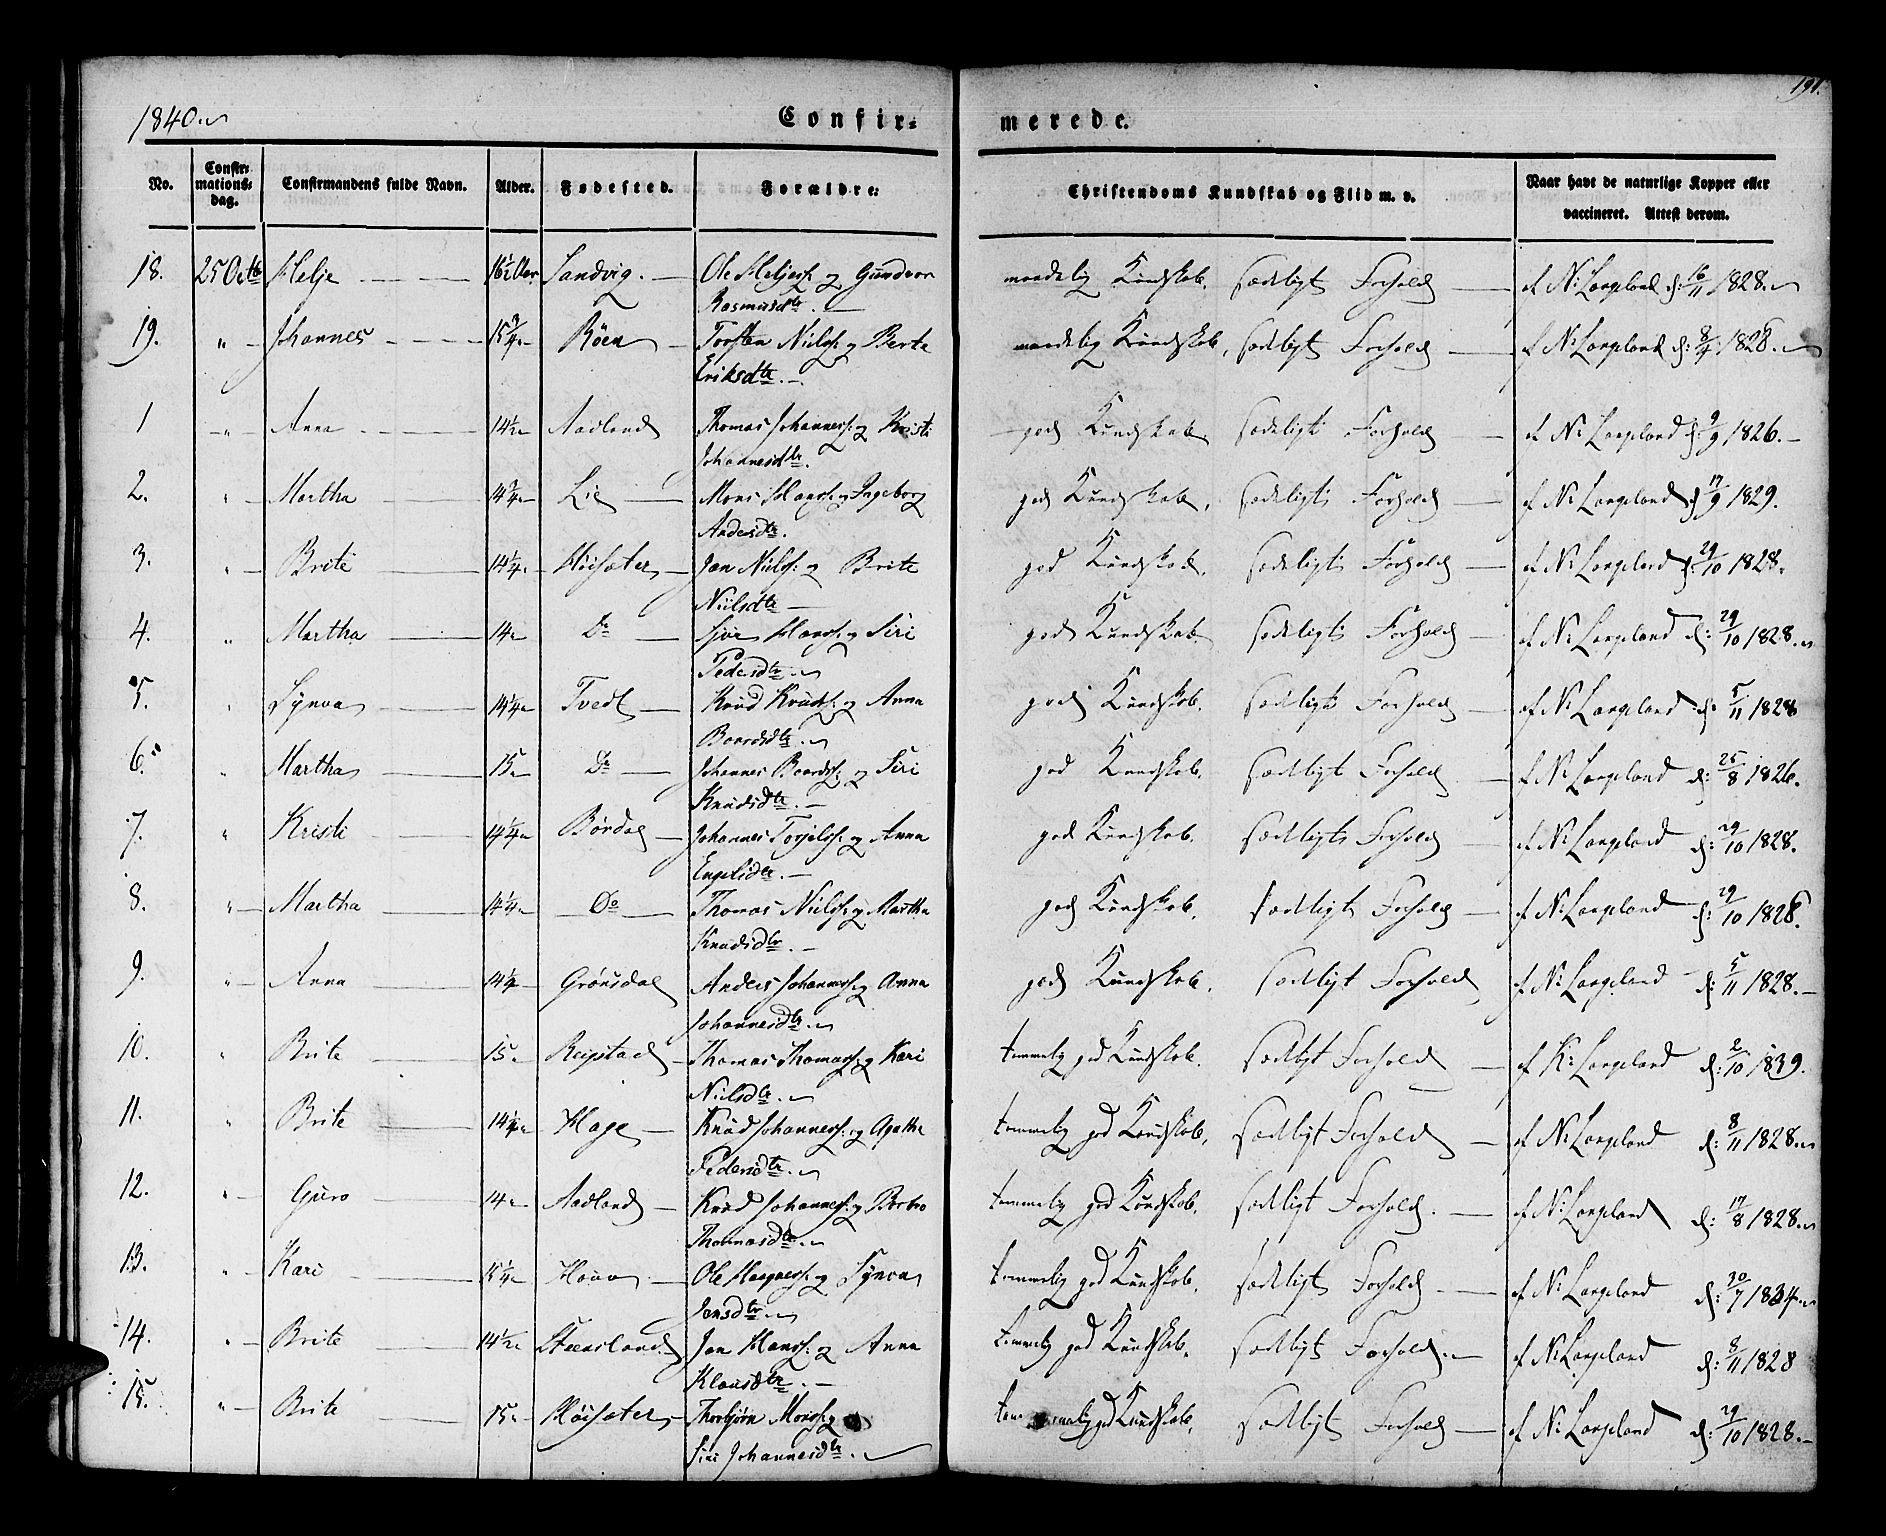 1840.
Confir=
merede.
191.
No.
Confir=
mations=
dag.
Confirmandens fulde Navn.
Alder.
Fødested.
Forældre:
Christendoms Kundskab og Flid m. v.
Naar havt de naturlige Kopper eller
vaccineret. Attest derom.
18. 25 Octb Helje 16½ Aar Sandvig. Ole Heljes: og Gundvor maadelig Kundskab. sædeligt Forhold af N: Langeland d: 16/11 1828.
Rasmusdtr.
19. " Johannes 15¾ Röen Torsten Niels: og Berte maadelig Kundskab, sædeligt Forhold af N: Langeland d: 8/4 1828.
Eriksdtr.
1 " Anna 14½ Aadland Thomas Johannes: og Kristi god Kundskab sædeligt Forhold af N: Langeland d: 9/9 1826.
Johannesdtr.
2. " Martha 14¾ Lie Mons Hans: og Ingeborg god Kundskab, sædeligt Forhold af N: Langeland d: 17/9 1829.
Andersdtr.
3. " Brite 14¼ Höisæter Jon Niels: og Brite god Kundskab, sædeligt Forhold af N: Langeland d: 29/10 1828.
Nielsdtr
4. " Martha 14 Do Sjur Hans: og Siri god Kundskab sædeligt Forhold af N: Langeland d: 29/10 1828.
Pedersdtr.
5. " Synva 14¼ Tvedt Knud Knuds: og Anna god Kundskab. sædeligt Forhold af N: Langeland d: 5/11 1828
Baardsdtr.
6. " Martha 15 Do Johannes Baards: og Siri god Kundskab. sædeligt Forhold af N: Langeland d: 25/8 1826.
Knudsdtr.
7. " Kristi 14¼ Børdal Johannes Torjels: og Anna god Kundskab. sædeligt Forhold af N: Langeland d: 29/10 1828.
Engelsdtr.
8. " Martha 14¼ Do Thomas Niels: og Martha god Kundskab. sædeligt Forhold af N: Langeland d: 29/10 1828.
Knudsdtr.
9. " Anna 14¼ Grönsdal Anders Johannes: og Anna god Kundskab. sædeligt Forhold af N: Langeland d: 5/11 1828.
Johannesdtr.
10. " Brite 15 Reipstad Thomas Thomas: og Kari temmelig god Kundskab. sædeligt Forhold af K: Langeland d: 2/10 1839.
Nielsdtr.
11. " Brite 14¼ Hage Knud Johannes: og Agatha temmelig god Kundskab, sædeligt Forhold af N: Langeland d: 8/11 1828.
Pedersdtr.
12. " Guro 14 Aadland Knud Johannes: og Barbro temmelig god Kundskab. sædeligt Forhold. af N: Langeland d: 17/8 1828.
Thomasdtr.
13. " Kari 15¼ Ole Magnes: og Synva temmelig god Kundskab. sædeligt Forhold. af N: Langeland d: 30/7 1834.
Jensdtr.
14. " Brite 14½ Steensland Jon Hans: og Anna temmelig god Kundskab. sædeligt Forhold. af N: Langeland d: 8/11 1828
Klausdtr.
15. " Brite 15 Höisæter Thorbjörn Mons: og temmelig god Kundskab. sædeligt Forhold af N: Langeland d: 29/10 1828.
Siri Johannesdtr.